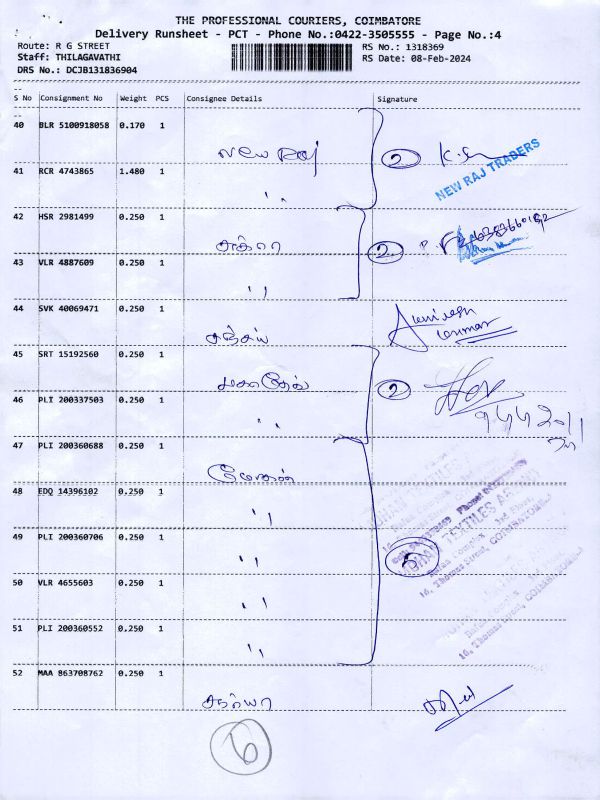 THE PROFESSIONAL COURIERS, COIMBATORE
Delivery Runsheet - PCT - Phone No.:0422-3505555 - Page No.:4
Route: R G STREET
RS No.: 1318369
Staff: THILAGAVATHI
RS Date: 08-Feb-2024
DRS No.: DCJB131836904
S No Consignment No Weight PCS Consignee Details Signature
40 BLR 5100918058 0.170 1
New Raj 2
NEW RAJ TRADERS
41 RCR 4743865 1.480 1
" 
42 HSR 2981499 0.250 1
2
43 VLR 4887609 0.250 1
"
44 SVK 40069471 0.250 1
சஞ்சய்
45 SRT 15192560 0.250 1
மகாதேவ் 2
46 PLI 200337503 0.250 1
"
47 PLI 200360688 0.250 1
மோகன்
48 EDQ 14396102 0.250 1
"
49 PLI 200360706 0.250 1
" 5
50 VLR 4655603 0.250 1
"
51 PLI 200360552 0.250 1
"
52 MAA 863708762 0.250 1
6